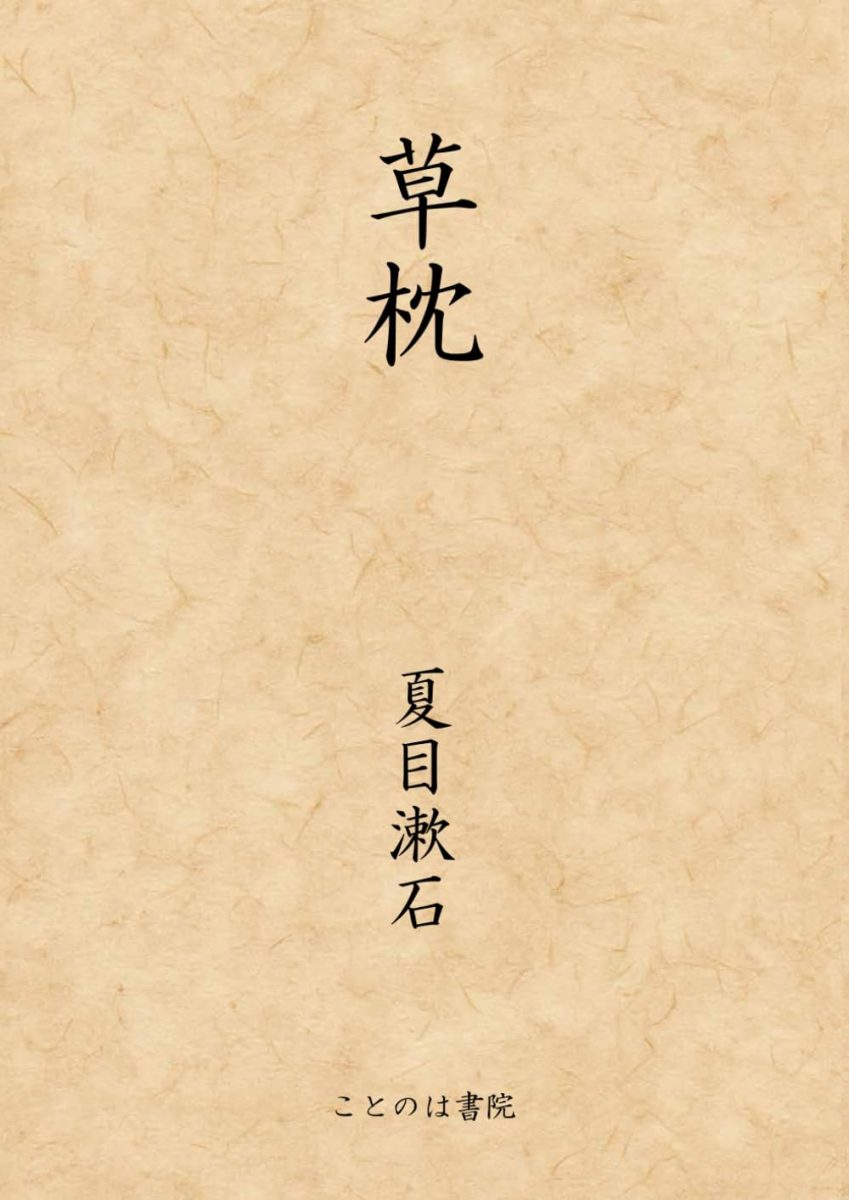 草枕
夏目漱石
ことのは書院